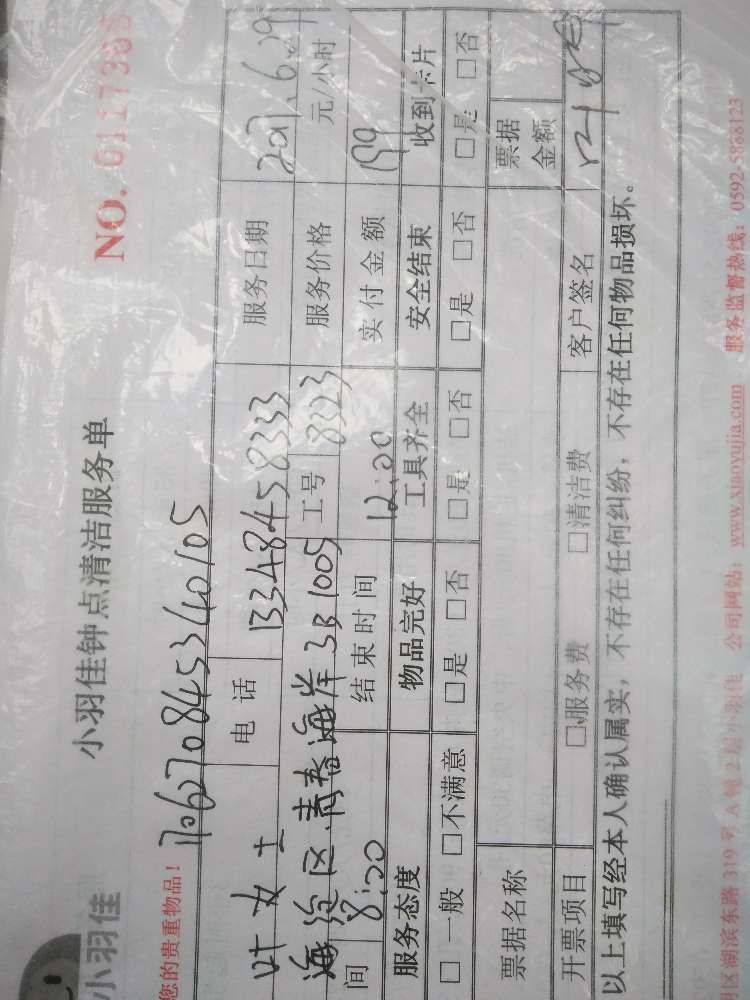 小羽佳
小羽佳钟点清洁服务单
NO. 0117306
您的贵重物品！
170627084534 0105
叶女士 电话 13348458333 服务日期 2017.6.29
海沧区.青春海岸3B1005 工号 8323 服务价格 元/小时
间 8:00 结束时间 12:00 实付金额 199
服务态度 物品完好 工具齐全 安全结束 收到卡片
□一般 □不满意 □是 □否 □是 □否 □是 □否 □是 □否
票据名称 票据金额
开票项目 □服务费 □清洁费 客户签名
以上填写经本人确认属实，不存在任何纠纷，不存在任何物品损坏。
区湖滨东路 319 号 A 幢 2 层小羽佳 公司网站：www.xiaoyujia.com 服务监督热线：0592-5888123